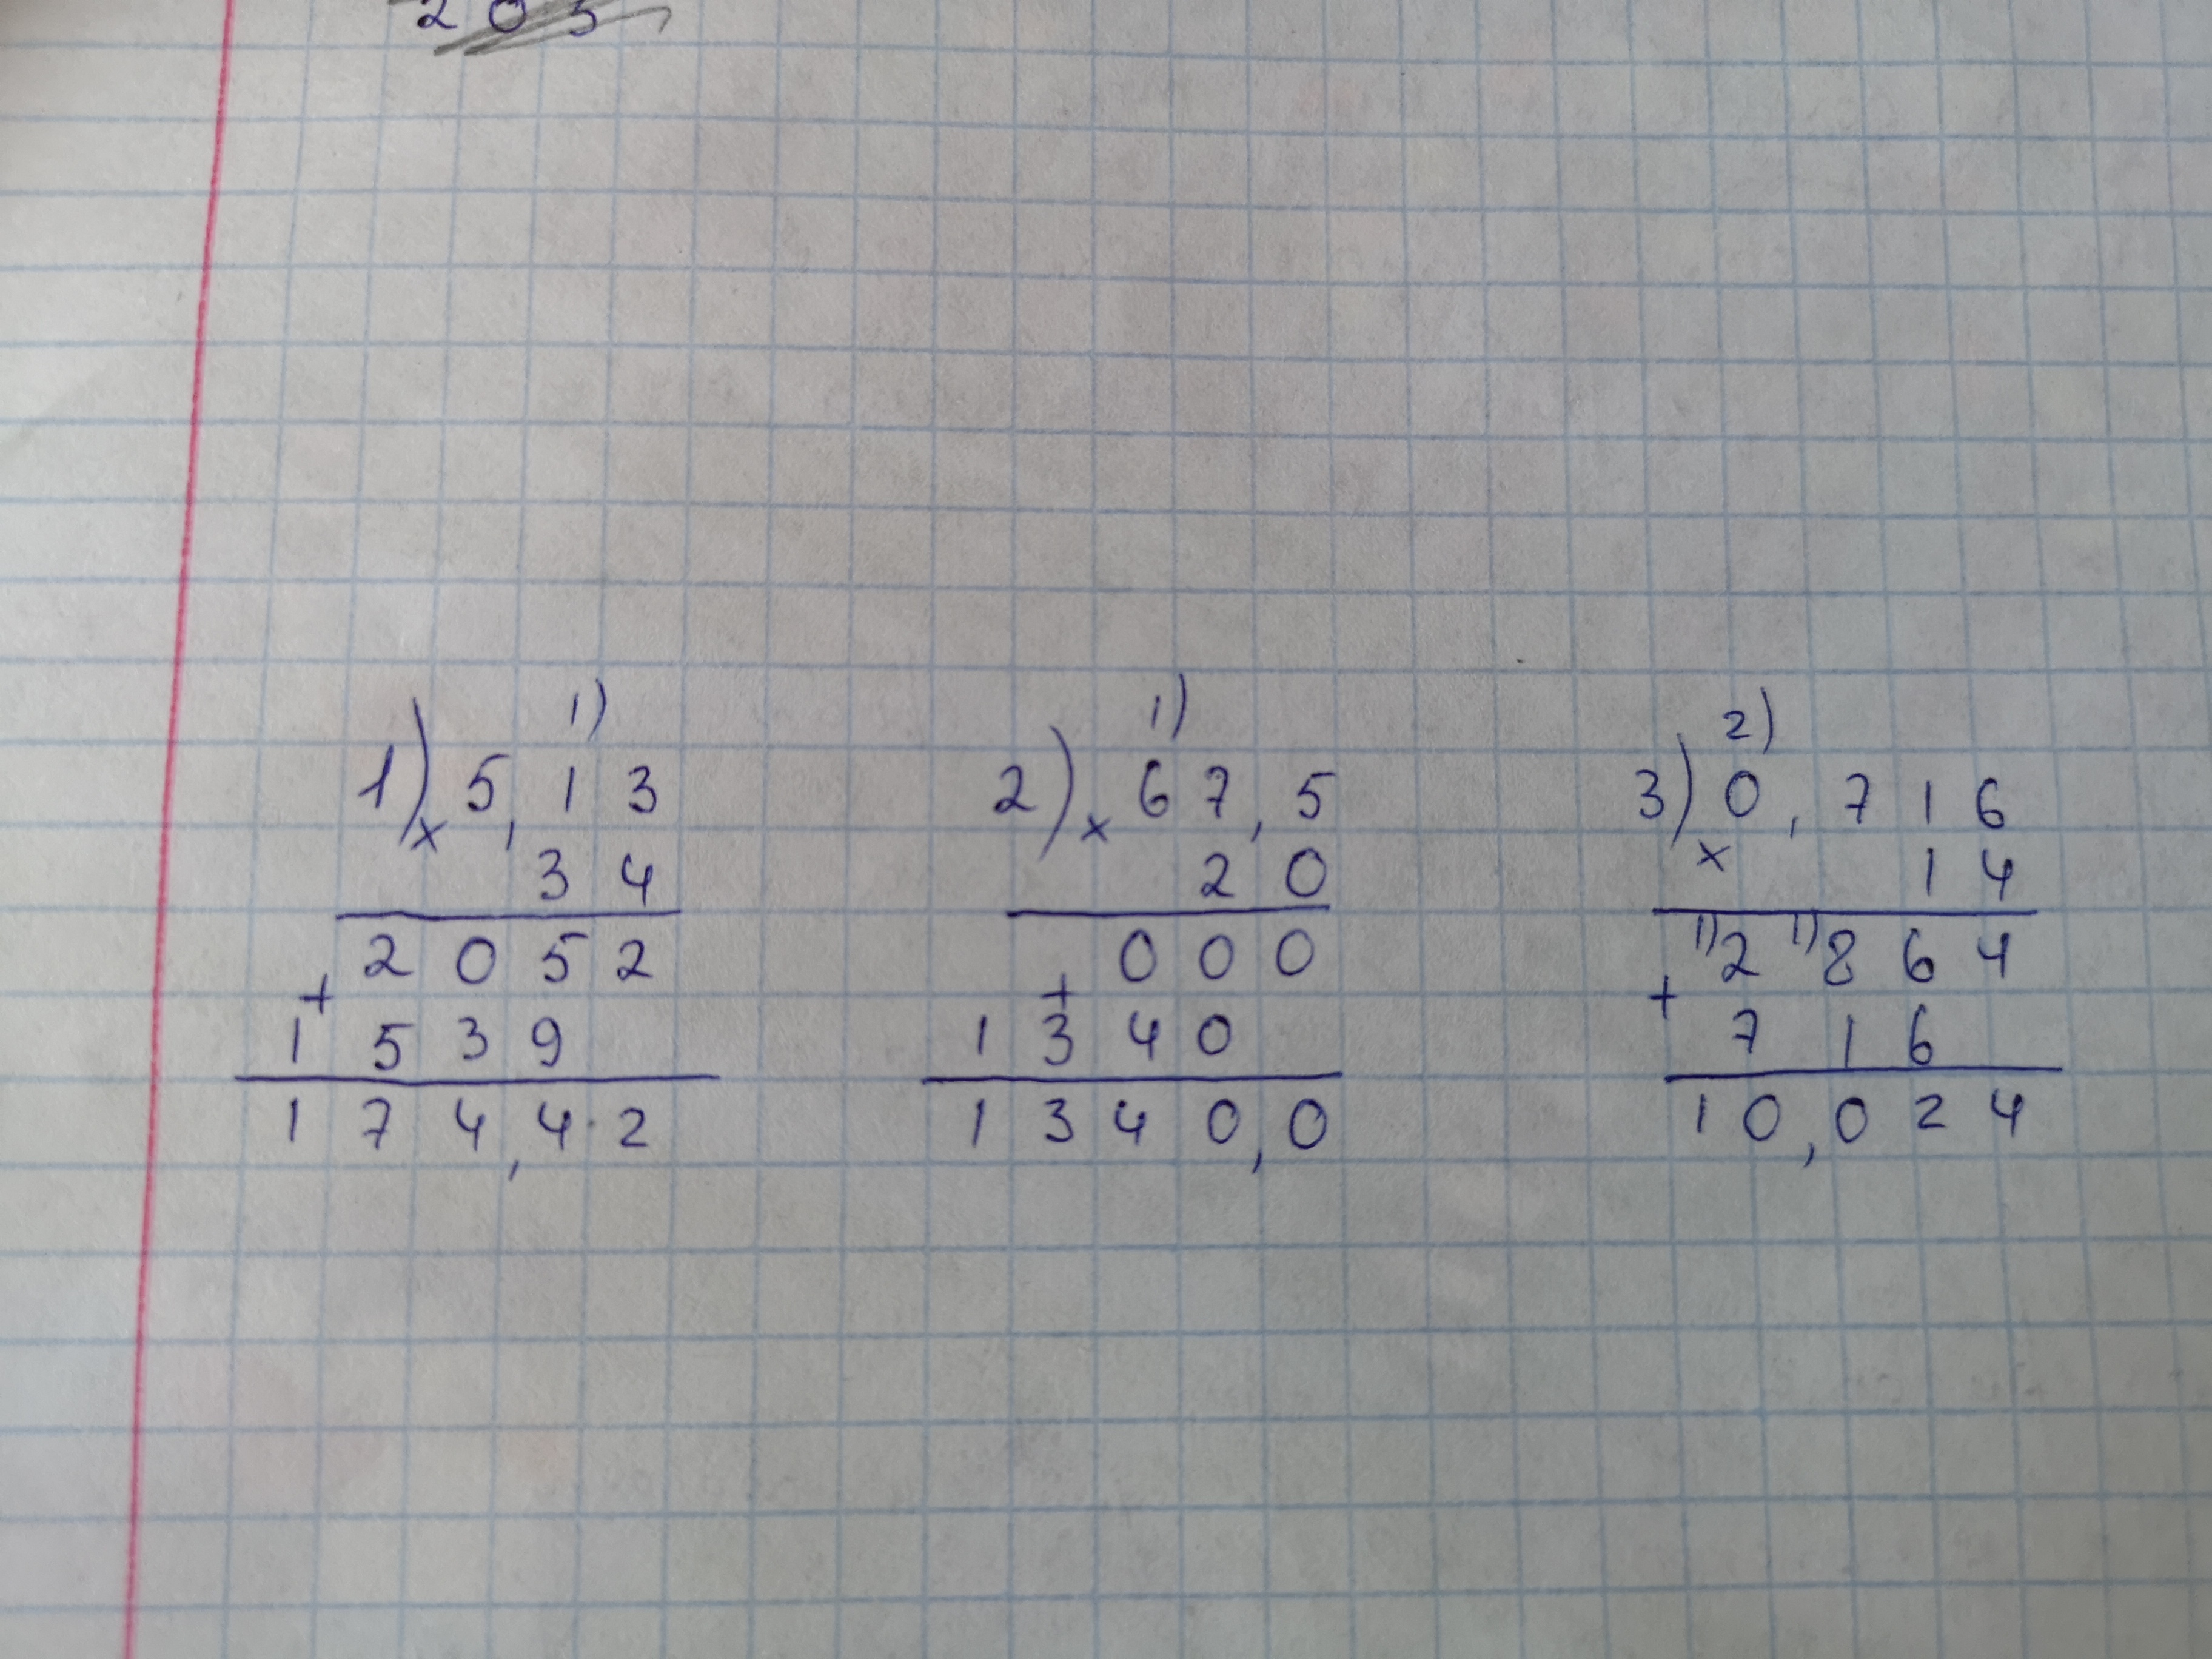 203
1)
1) × 5,13
34
2052
+
1539
174,42
1)
2) × 67,5
20
000
+
1340
1340,0
2)
3) 0,716
×
14
1) 2 1) 864
+
716
10,024